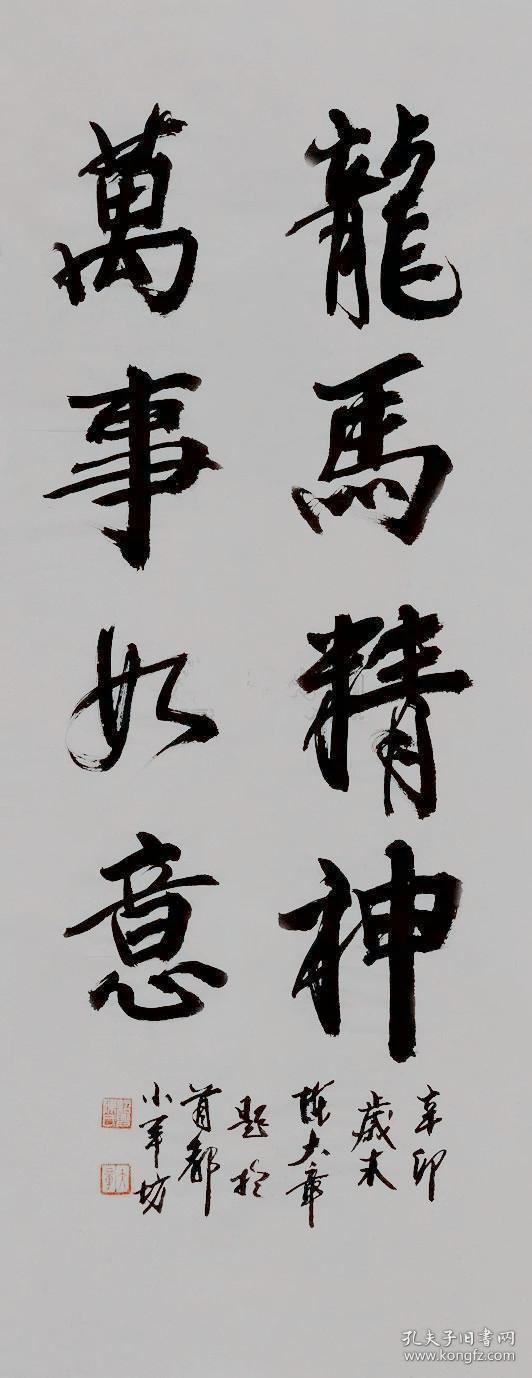 龍馬精神
萬事如意
辛卯
歲末
陳大章
題於
首都
小羊坊
孔夫子旧书网
www.kongfz.com